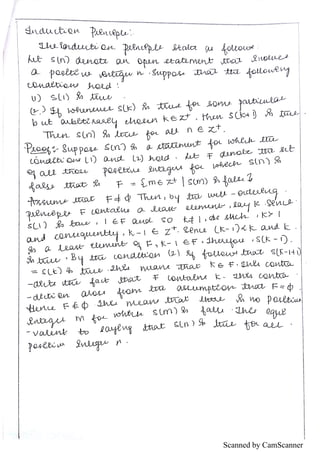 Induction Principle:
The Induction Principle State as follows
Let S(n) denote an open statement that involves
a positive integer n. Suppose that the following
condition hold:
(1) S(1) is true
(2.) If whenever S(k) is true for some particular
but arbitrarily chosen k∈Z⁺, then S(k+1) is true.
Then S(n) is true for all n ∈ Z⁺.
Proof:- Suppose S(n) is a statement for which the
condition (1) and (2) hold. Let F denote the set
of all those positive integers for which S(n) is
false that is F = {m∈Z⁺ | S(m) is false}
Assume that F≠Φ Then, by the well-ordering
principle F contains a least element, say K. Since
S(1) is true, 1∉F and so K≠1, as such, K>1
and consequently, k-1 ∈ Z⁺. Since (k-1)<k and k
is a least element of F, k-1 ∉ F. Therefore, S(k-1)
is true. By the condition (2) it follows that S(k-1+1)
= S(k) is true. This means that K∉F. This contra
-dicts the fact that F contains k. This contra
-diction arose from the assumption that F≠Φ
Hence F=Φ This means that there is no positive
integer m for which S(m) is false. This equi
-valent to saying that S(n) is true for all
positive integer n.
Scanned by CamScanner